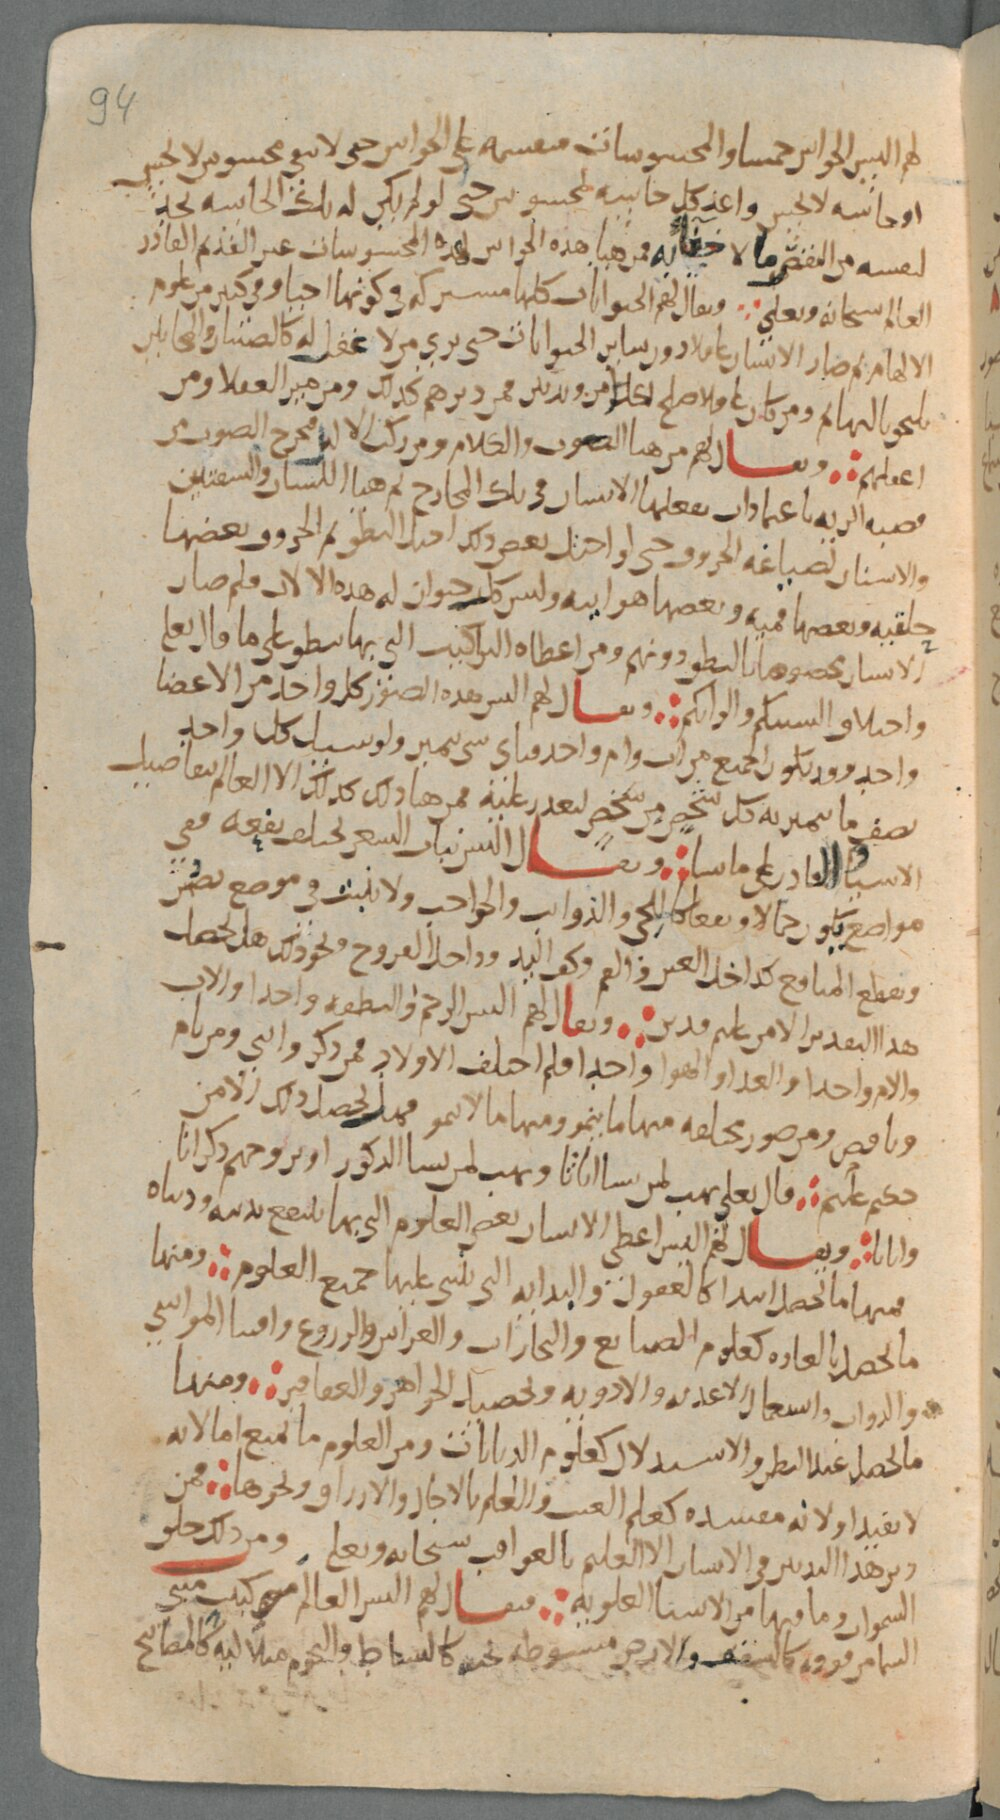 94
لهم اليس الحواس خمسا والمحسوسات مقسمه على الحواس حتى لا يبقى محسوس لا يحس
او حاسه لا تحس واعد كل حاسه لمحسوس حتى لو لم يكن له تلك الحاسه لحق
لنفسه من النقص ما لا خفا به فمن هيا هذه الحواس لهذه المحسوسات غير القديم القادر
العالم سبحانه وتعلى ؞ ويقال لهم الحيوانات كلها مشتركه في كونها احيا وفي كثير من علوم
الالهام ثم صار الانسان عاقلا دون ساير الحيوانات حتى يرى من لا عقل له كالصبيان والمجانين
يلحق بالبهايم ومن كان عاقلا صلح لكل امر وتدبير فمن دبرهم كذلك ومن ميز العقلا ومن
اعقلهم ؞ ويقال لهم من هيا الصوت والكلام ومن ركب الاله فمخرج الصوت من
قصبه الريه باعتمادات يفعلها الانسان في تلك المخارج ثم هيا اللسان والشفتين
والاسنان لصياغه الحروف حتى لو اختل بعض ذلك اختل النطق ثم الحروف بعضها
حلقيه وبعضها فميه وبعضها هوايه وليس كل حيوان له هذه الالات فلم صار
الانسان مخصوصا بالنطق دونهم ومن اعطاه التراكيب التي بها ينطق على ما قال تعلى
واختلاف السنتكم والوانكم ؞ ويقال لهم اليس هذه الصور كل واحد من الاعضا
واحد وقد يكون الجميع من اب وام واحد فباي شي تميز ولو سيل كل واحد
يصف ما يميز به كل شخص من شخص لتعذر عليه فمن هيا ذلك كذلك الا العالم بتفاصيل
الاشيا القادر على ما يشا ؞ ويقال اليس نبات الشعر يختلف نفعه ففي
مواضع يكون جمالا ونفعا كاللحى والذوايب والحواجب ولا ينبت في موضع يضر
ويقطع المنافع كداخل العين والفم وكف اليد وداخل الفروج ونحو ذلك هل يحصل
هذا التقدير الا من عليم قدير ؞ ويقال لهم اليس الرحم والنطفه واحدا والاب
والام واحدا والغذا والهوا واحدا فلم اختلف الاولاد فمن ذكر وانثى ومن تام
وناقص ومن صور مختلفه منها ما ينمو ومنها ما لا ينمو فهل يحصل ذلك الا من
حكيم عليم ؞ قال تعلى يهب لمن يشا اناثا ويهب لمن يشا الذكور او يزوجهم ذكرانا
واناثا ؞ ويقال لهم اليس اعطى الانسان بعض العلوم التي بها ينتفع بدينه ودنياه
فمنها ما يحصل ابتدا كالعقول والبدايه التي يبتنى عليها جميع العلوم ؞ ومنها
ما يحصل بالعاده كعلوم الصنايع والتجارات والغراس والزروع واقتنا المواشي
والدواب واستعمال الاغذيه والادويه وتحصيل الجواهر والعقاقير ؞ ومنها
ما يحصل عند النظر والاستدلال كعلوم الديانات ومن العلوم ما تمنع اما لانه
لا يفيد او لانه مفسده كعلم الغيب والعلم بالاجال والارزاق ونحوها ؞ فمن
دبر هذا التدبير في الانسان الا العليم بالعواقب سبحانه وتعلى ومن ذلك خلق
السموات وما فيها من الاشيا العلويه ؞ فيقال لهم اليس العالم كبيت مبني
السما مرفوعه كالسقف والارض مبسوطه تحته كالبساط والنجوم متلالية كالمصابيح